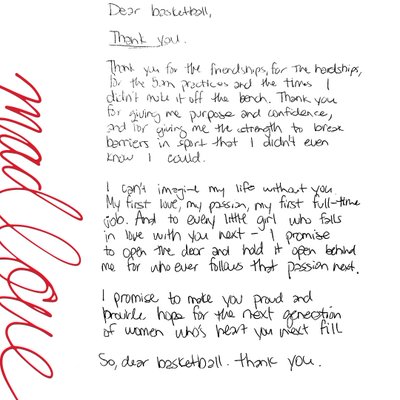 Dear basketball,
Thank you.
Thank you for the friendships, for the hardships,
for the 5am practices and the times I
didn't make it off the bench. Thank you
for giving me purpose and confidence,
and for giving me the strength to break
barriers in sport that I didn't even
know I could.
I can't imagine my life without you.
My first love, my passion, my first full-time
job. And to every little girl who falls
in love with you next - I promise
to open the door and hold it open behind
me for who ever follows that passion next.
I promise to make you proud and
provide hope for the next generation
of women who's heart you next fill
So, dear basketball. thank you.
mad love